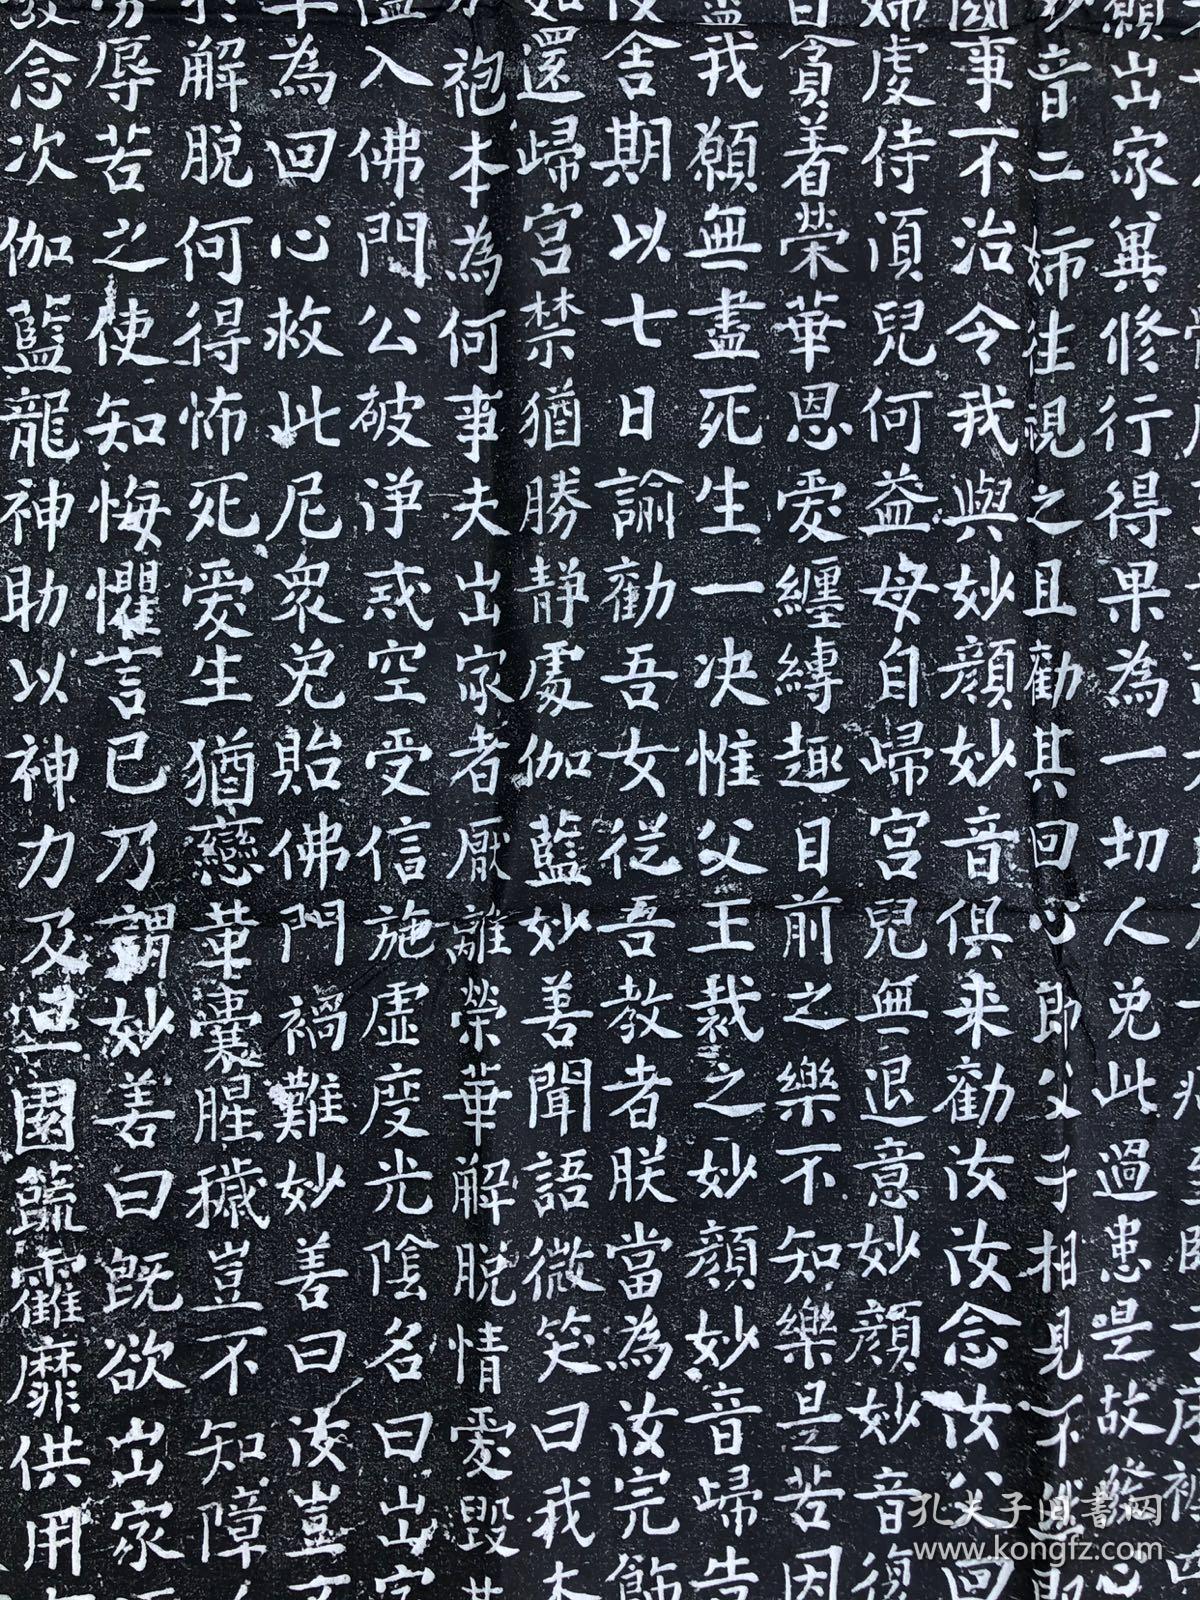 願出家冀修行得果為一切人免此過患是故發心
妙音二姊往視之且勸其回心即父子相見不
國事不治令我與妙顏妙音俱来勸汝汝念汝父回
婦虔侍湏兒何益母自歸宮兒無退意妙顏妙音復
日貪着榮華恩愛纏縛趣目前之樂不知樂是苦因
我願無盡死生一决惟父王裁之妙顏妙音歸告
舍期以七日諭勸吾女從吾教者朕當為汝完飾
如還歸宮禁猶勝静處伽藍妙善聞語微笑曰我本
袍本為何事夫出家者厭離榮華解脱情愛毀其
入佛門公破淨戒空受信施虛度光陰名曰出家
為回心救此尼衆免貽佛門禍難妙善曰汝豈不
於解脱何得怖死愛生猶戀革囊腥穢豈不知障
辱苦之使知悔懼言已乃謂妙善曰既欲出家
念次伽藍龍神助以神力及旦園蔬靃靡供用
孔夫子旧书网
www.kongfz.com